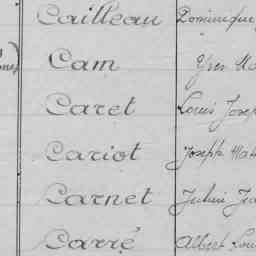 Cailleau Dominique
Cam Yves Ma
Caret Louis Josep
Cariot Joseph Mat
Carnet Julien
Carré Albert Lou